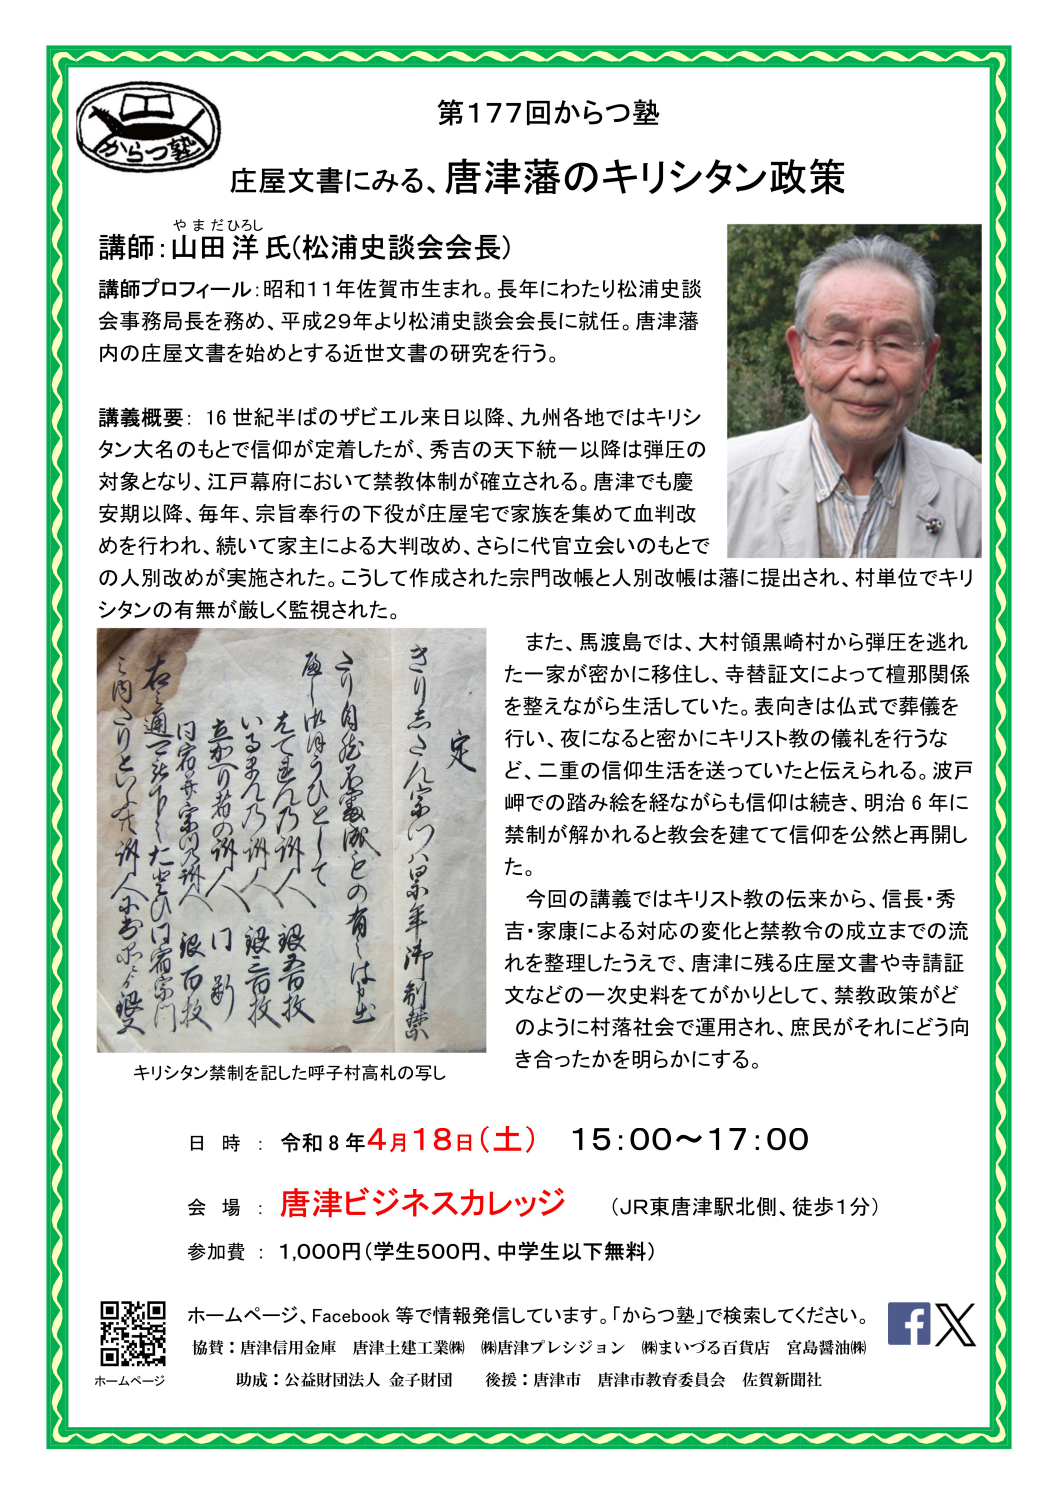 からつ塾
第177回からつ塾
庄屋文書にみる、唐津藩のキリシタン政策
やまだひろし
講師:山田 洋 氏(松浦史談会会長)
講師プロフィール:昭和11年佐賀市生まれ。長年にわたり松浦史談
会事務局長を務め、平成29年より松浦史談会会長に就任。唐津藩
内の庄屋文書を始めとする近世文書の研究を行う。
講義概要: 16 世紀半ばのザビエル来日以降、九州各地ではキリシ
タン大名のもとで信仰が定着したが、秀吉の天下統一以降は弾圧の
対象となり、江戸幕府において禁教体制が確立される。唐津でも慶
安期以降、毎年、宗旨奉行の下役が庄屋宅で家族を集めて血判改
めを行われ、続いて家主による大判改め、さらに代官立会いのもとで
の人別改めが実施された。こうして作成された宗門改帳と人別改帳は藩に提出され、村単位でキリ
シタンの有無が厳しく監視された。
また、馬渡島では、大村領黒崎村から弾圧を逃れ
た一家が密かに移住し、寺替証文によって檀那関係
を整えながら生活していた。表向きは仏式で葬儀を
行い、夜になると密かにキリスト教の儀礼を行うな
ど、二重の信仰生活を送っていたと伝えられる。波戸
岬での踏み絵を経ながらも信仰は続き、明治 6 年に
禁制が解かれると教会を建てて信仰を公然と再開し
た。
今回の講義ではキリスト教の伝来から、信長・秀
吉・家康による対応の変化と禁教令の成立までの流
れを整理したうえで、唐津に残る庄屋文書や寺請証
文などの一次史料をてがかりとして、禁教政策がど
のように村落社会で運用され、庶民がそれにどう向
き合ったかを明らかにする。
定
キリシタン禁制を記した呼子村高札の写し
日 時 : 令和8年4月18日(土) 15:00〜17:00
会 場 : 唐津ビジネスカレッジ (JR東唐津駅北側、徒歩1分)
参加費 : 1,000円(学生500円、中学生以下無料)
ホームページ、Facebook 等で情報発信しています。「からつ塾」で検索してください。
協賛：唐津信用金庫 唐津土建工業㈱ ㈱唐津プレシジョン ㈱まいづる百貨店 宮島醤油㈱
ホームページ
助成：公益財団法人 金子財団 後援：唐津市 唐津市教育委員会 佐賀新聞社